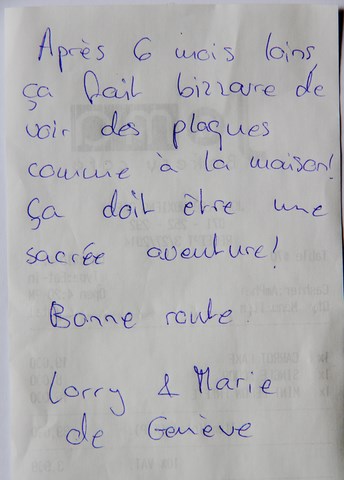 Après 6 mois loins,
ça fait bizzaire de
voir des plaques
comme à la maison!
Ça doit être une
sacrée aventure!
Bonne route.
Lorry & Marie
de Genève